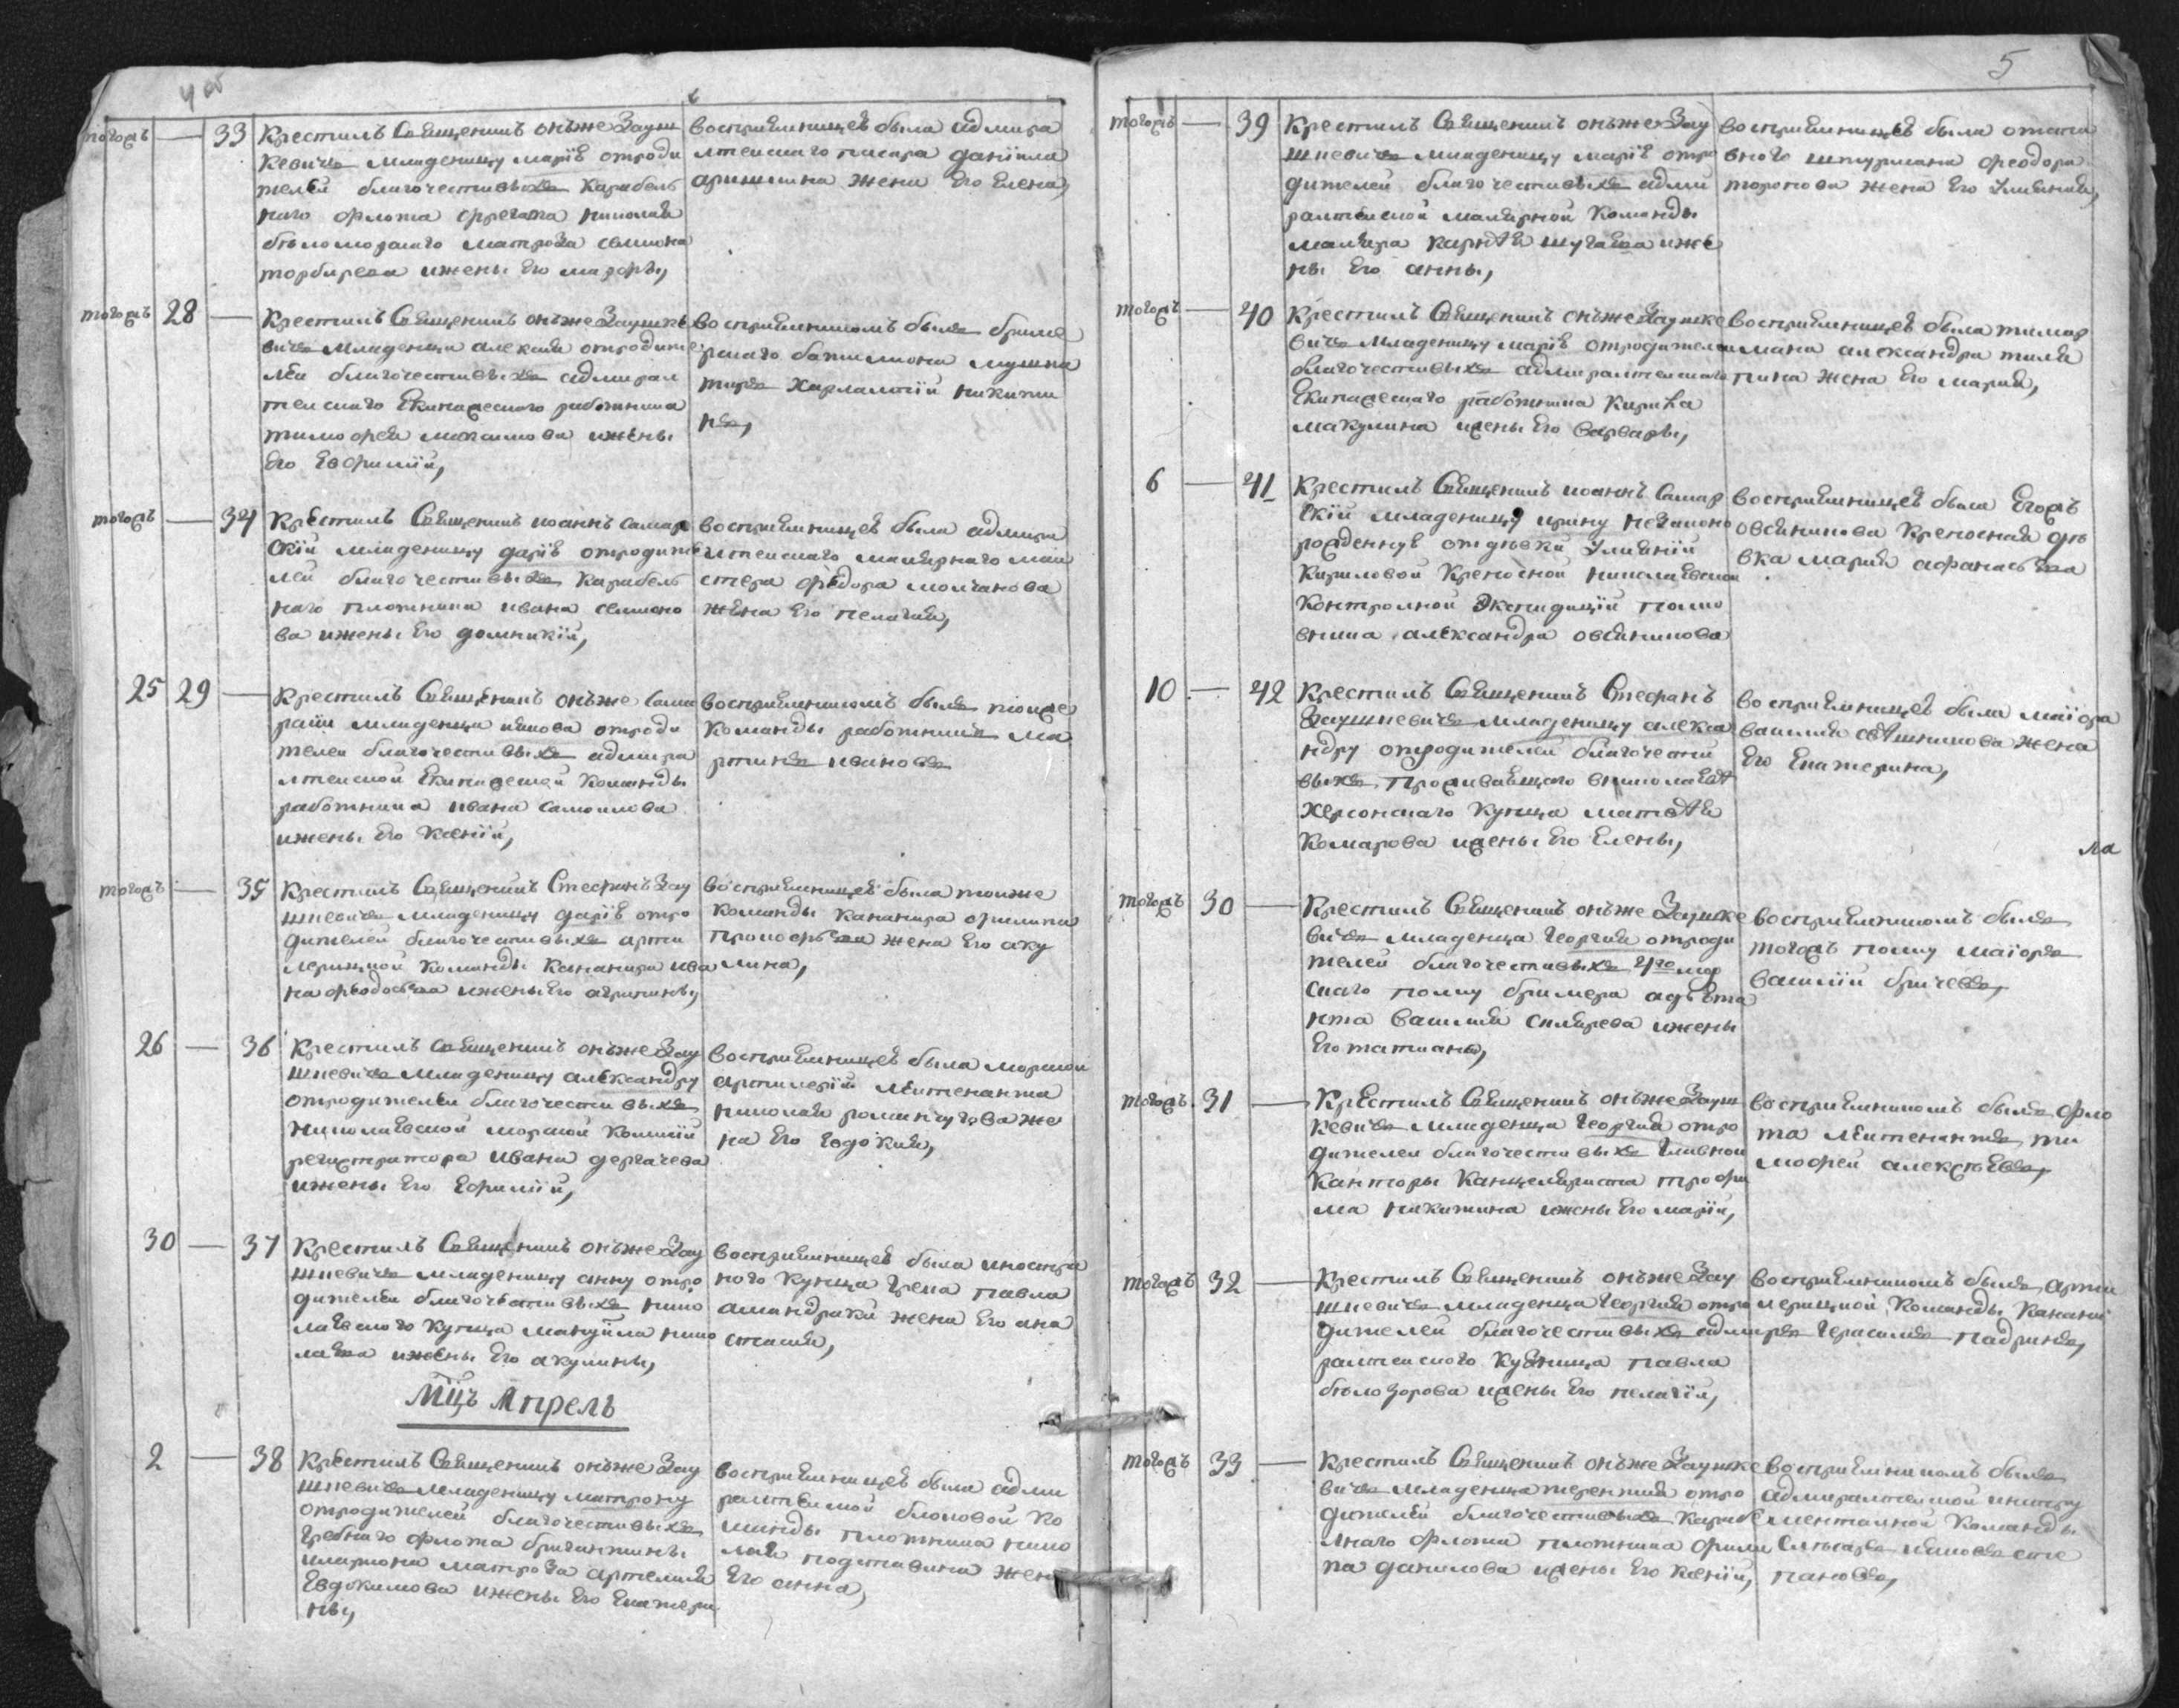 4 об
тогожъ — 33 Крестилъ Священникъ онъже Зауш
кевичъ младеницу марію отроди
телей благочестивыхъ Карабель
наго флота фрегата николая
бѣломорскаго матроза семиона
торбирева ижены Его марфы,
восприемницею была адмира
лтенскаго писара даніила
аришкина жена Его Елена,
тогожъ 28 — Крестилъ Священникъ онъже Заушке
вичъ младенца алексия отродите
лей благочестивыхъ адмирал
тенскаго Екипажескаго работника
тимофея максимова ижены
Его Евфиміи,
восприемникомъ былъ бриме
рскаго баталиона мушка
тиръ Харлампій никити
нъ,
тогожъ — 34 Крестилъ Священникъ иоаннъ самар
скій младеницу дарію отродите
лей благочестивыхъ Карабель
наго плотника ивана семионо
ва ижены Его домникіи,
восприемницею была адмира
лтенскаго малярнаго маи
стера федора молчанова
жена Его пелагия,
25 29 — Крестилъ Священникъ онъже Сама
рски младенца иякова отроди
телей благочестивыхъ адмира
лтенской Екипажеской Команды
работника ивана самоилова
ижены Его Ксеніи,
восприемникомъ былъ тоиже
Команды работникъ ма
ртинъ ивановъ
тогожъ — 35 Крестилъ Священникъ Стефанъ Зау
шкевичъ младеницу дарію отро
дителей благочестивыхъ арти
лерицкой Команды Канонира ива
на феодосѣева ижены Его агрипины,
восприемницею была тоиже
Команды Канонира филипа
прокофѣева жена Его аку
лина,
26 — 36 Крестилъ Священникъ онъже Зау
шкевичъ младеницу александру
отродителей благочестивыхъ
николаевской морской Комисіи
регистратора ивана дергачева
ижены Его Ефиміи,
восприемницею была морской
артилеріи леитенанта
николая романчугова же
на Его Евдокия,
30 — 37 Крестилъ Священникъ онъже Зау
шкевичъ младеницу анну отро
дителей благочестивыхъ нико
лаевского Купца мануйла нико
лаева ижены Его акулины,
восприемницею была иностра
ного Купца грека павла
амандраки жена Его ана
стасия,
Мцъ Апрель
2 — 38 Крестилъ Священникъ онъже Зау
шкевичъ младеницу матрону
отродителей благочестивыхъ
гребнаго флота бригантины
илариона матроза артемия
Евдокимова ижены Его Екатери
ны,
восприемницею была адми
ралтеиской блоковой ко
манды плотника нико
лая подставина жена
Его анна,
5
тогожъ — 39 Крестилъ Священникъ онъже Зау
шкевичъ младеницу марію отро
дителей благочестивыхъ адми
ралтеиской малярной Команды
маляра карнѣя шугаева иже
ны Его анны,
восприемницею была отста
вного штурмана феодора
торопова жена Его Улияния,
тогожъ — 40 Крестилъ Священникъ онъже Заушке
вичъ младеницу марію отродителеи
благочестивыхъ адмиралтенскаго
Екипажескаго работника Кирика
макулина иЖены Его варвары,
восприемницею была тимер
мана александра тиля
пина жена Его мария,
6 — 41 Крестилъ Священникъ иоаннъ Самар
скій младеницу ирину незаконо
рожденную отдѣвки Улияніи
Кириловой Крепосной николаевской
Контролной Экспедиціи полко
вника александра овсяникова
восприемницею была Егоръ
овсяникова Крепосная дѣ
вка мария афанасьева
10 — 42 Крестилъ Священникъ Стефанъ
Заушкевичъ младеницу алекса
ндру отродителей благочести
выхъ проживающаго вниколаевѣ
Херсонскаго Купца матвѣя
Комарова ижены Его Елены,
восприемницею была маіора
василия свѣшникова жена
Его Екатерина,
ла
тогожъ 30 — Крестилъ Священникъ онъже Заушке
вичъ младенца Георгия отроди
телей благочестивыхъ 4го мор
скаго полку бримера адъюта
нта василия склярева ижены
Его татианы,
восприемникомъ былъ
тогожъ полку маіоръ
василій бричевъ,
тогожъ 31 — Крестилъ Священникъ онъже Зауш
кевичъ младенца Георгия отро
дителей благочестивыхъ Главной
Канторы Канцеляриста трофи
ма никитина ижены Его маріи,
восприемникомъ былъ фло
та леитенантъ ти
мофей алексѣевъ,
тогожъ 32 — Крестилъ Священникъ онъже Зау
шкевичъ младенца Георгия отро
дителей благочестивыхъ адми
ралтенского Кузнеца павла
бѣлозорова ижены Его пелагіи,
восприемникомъ былъ арти
лерицкой Команды Канони
ръ Герасимъ падринъ,
тогожъ 33 — Крестилъ Священникъ онъже Заушке
вичъ младенца терентия отро
дителей благочестивыхъ Карабе
лнаго флота плотника фили
па данилова ижены Его Ксеніи,
восприемникомъ былъ
адмиралтенской инстру
ментальной Команды
Слѣсарь ияковъ сте
пановъ,